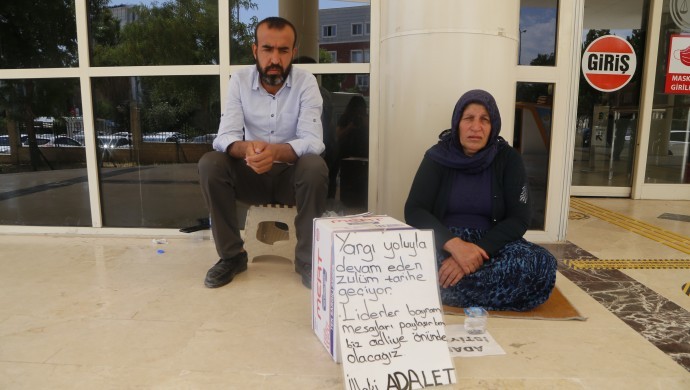 GİRİŞ
MASK
GİRİL
MERT
Yargı yoluyla
devam eden
zulüm tarihe
geçiyor.
Liderler bayram
mesajları paylaşırken
biz adliye önünde
olacağız
İlleki ADALET